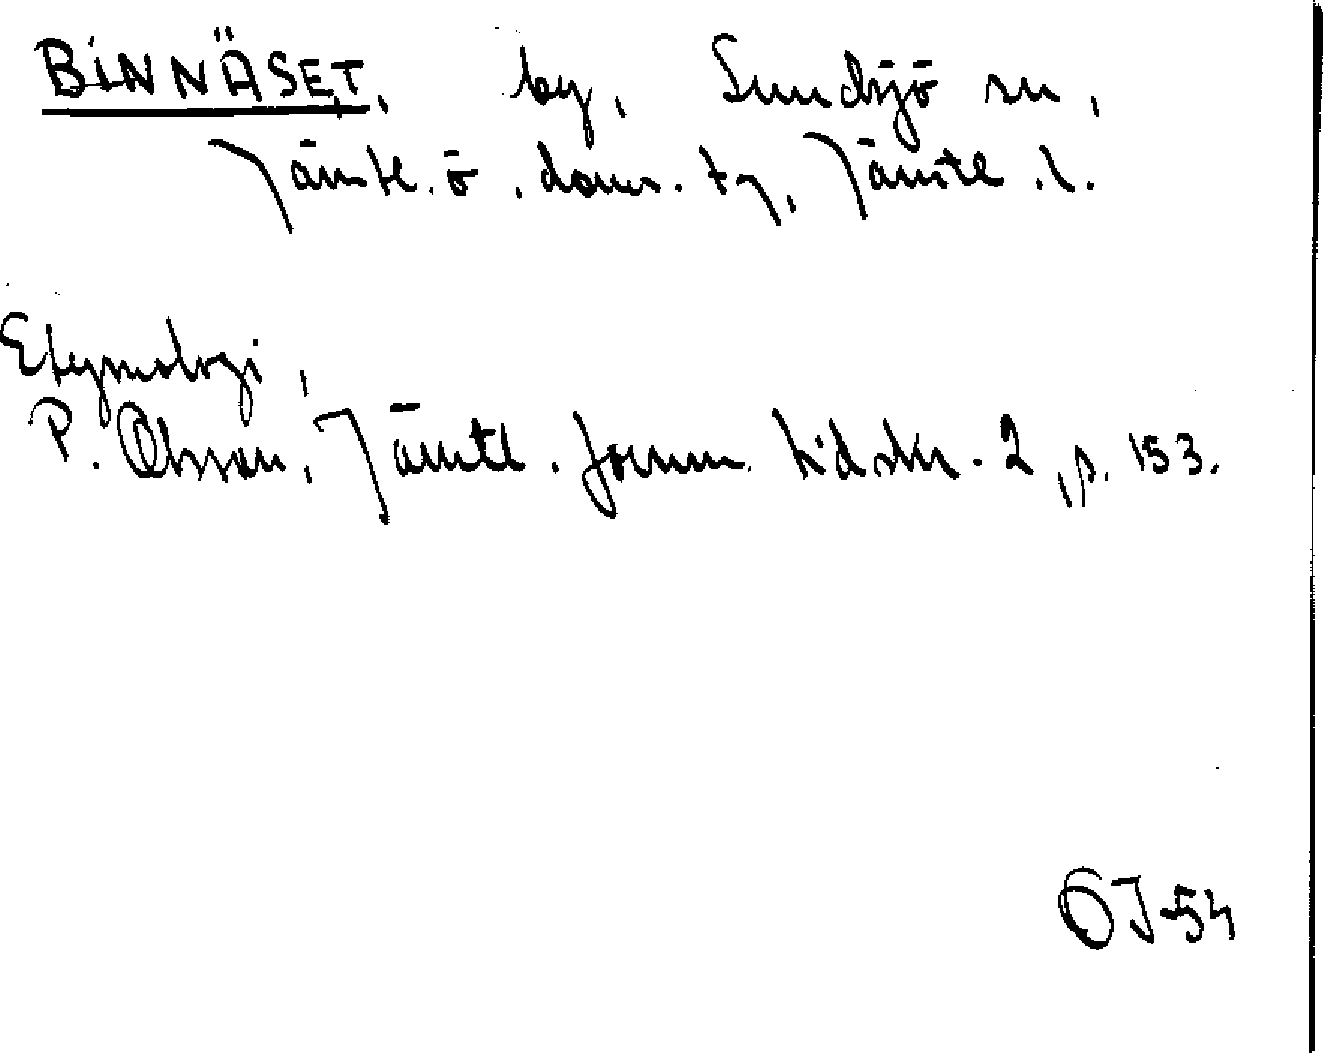 BINNÄSET, by, Sundsjö sn,
Jämtl. ö. doms. tg, Jämtl. l.
Etymologi,
P. Olsson, Jämtl. fornm. tidskr. 2, p. 153.
OJ 54